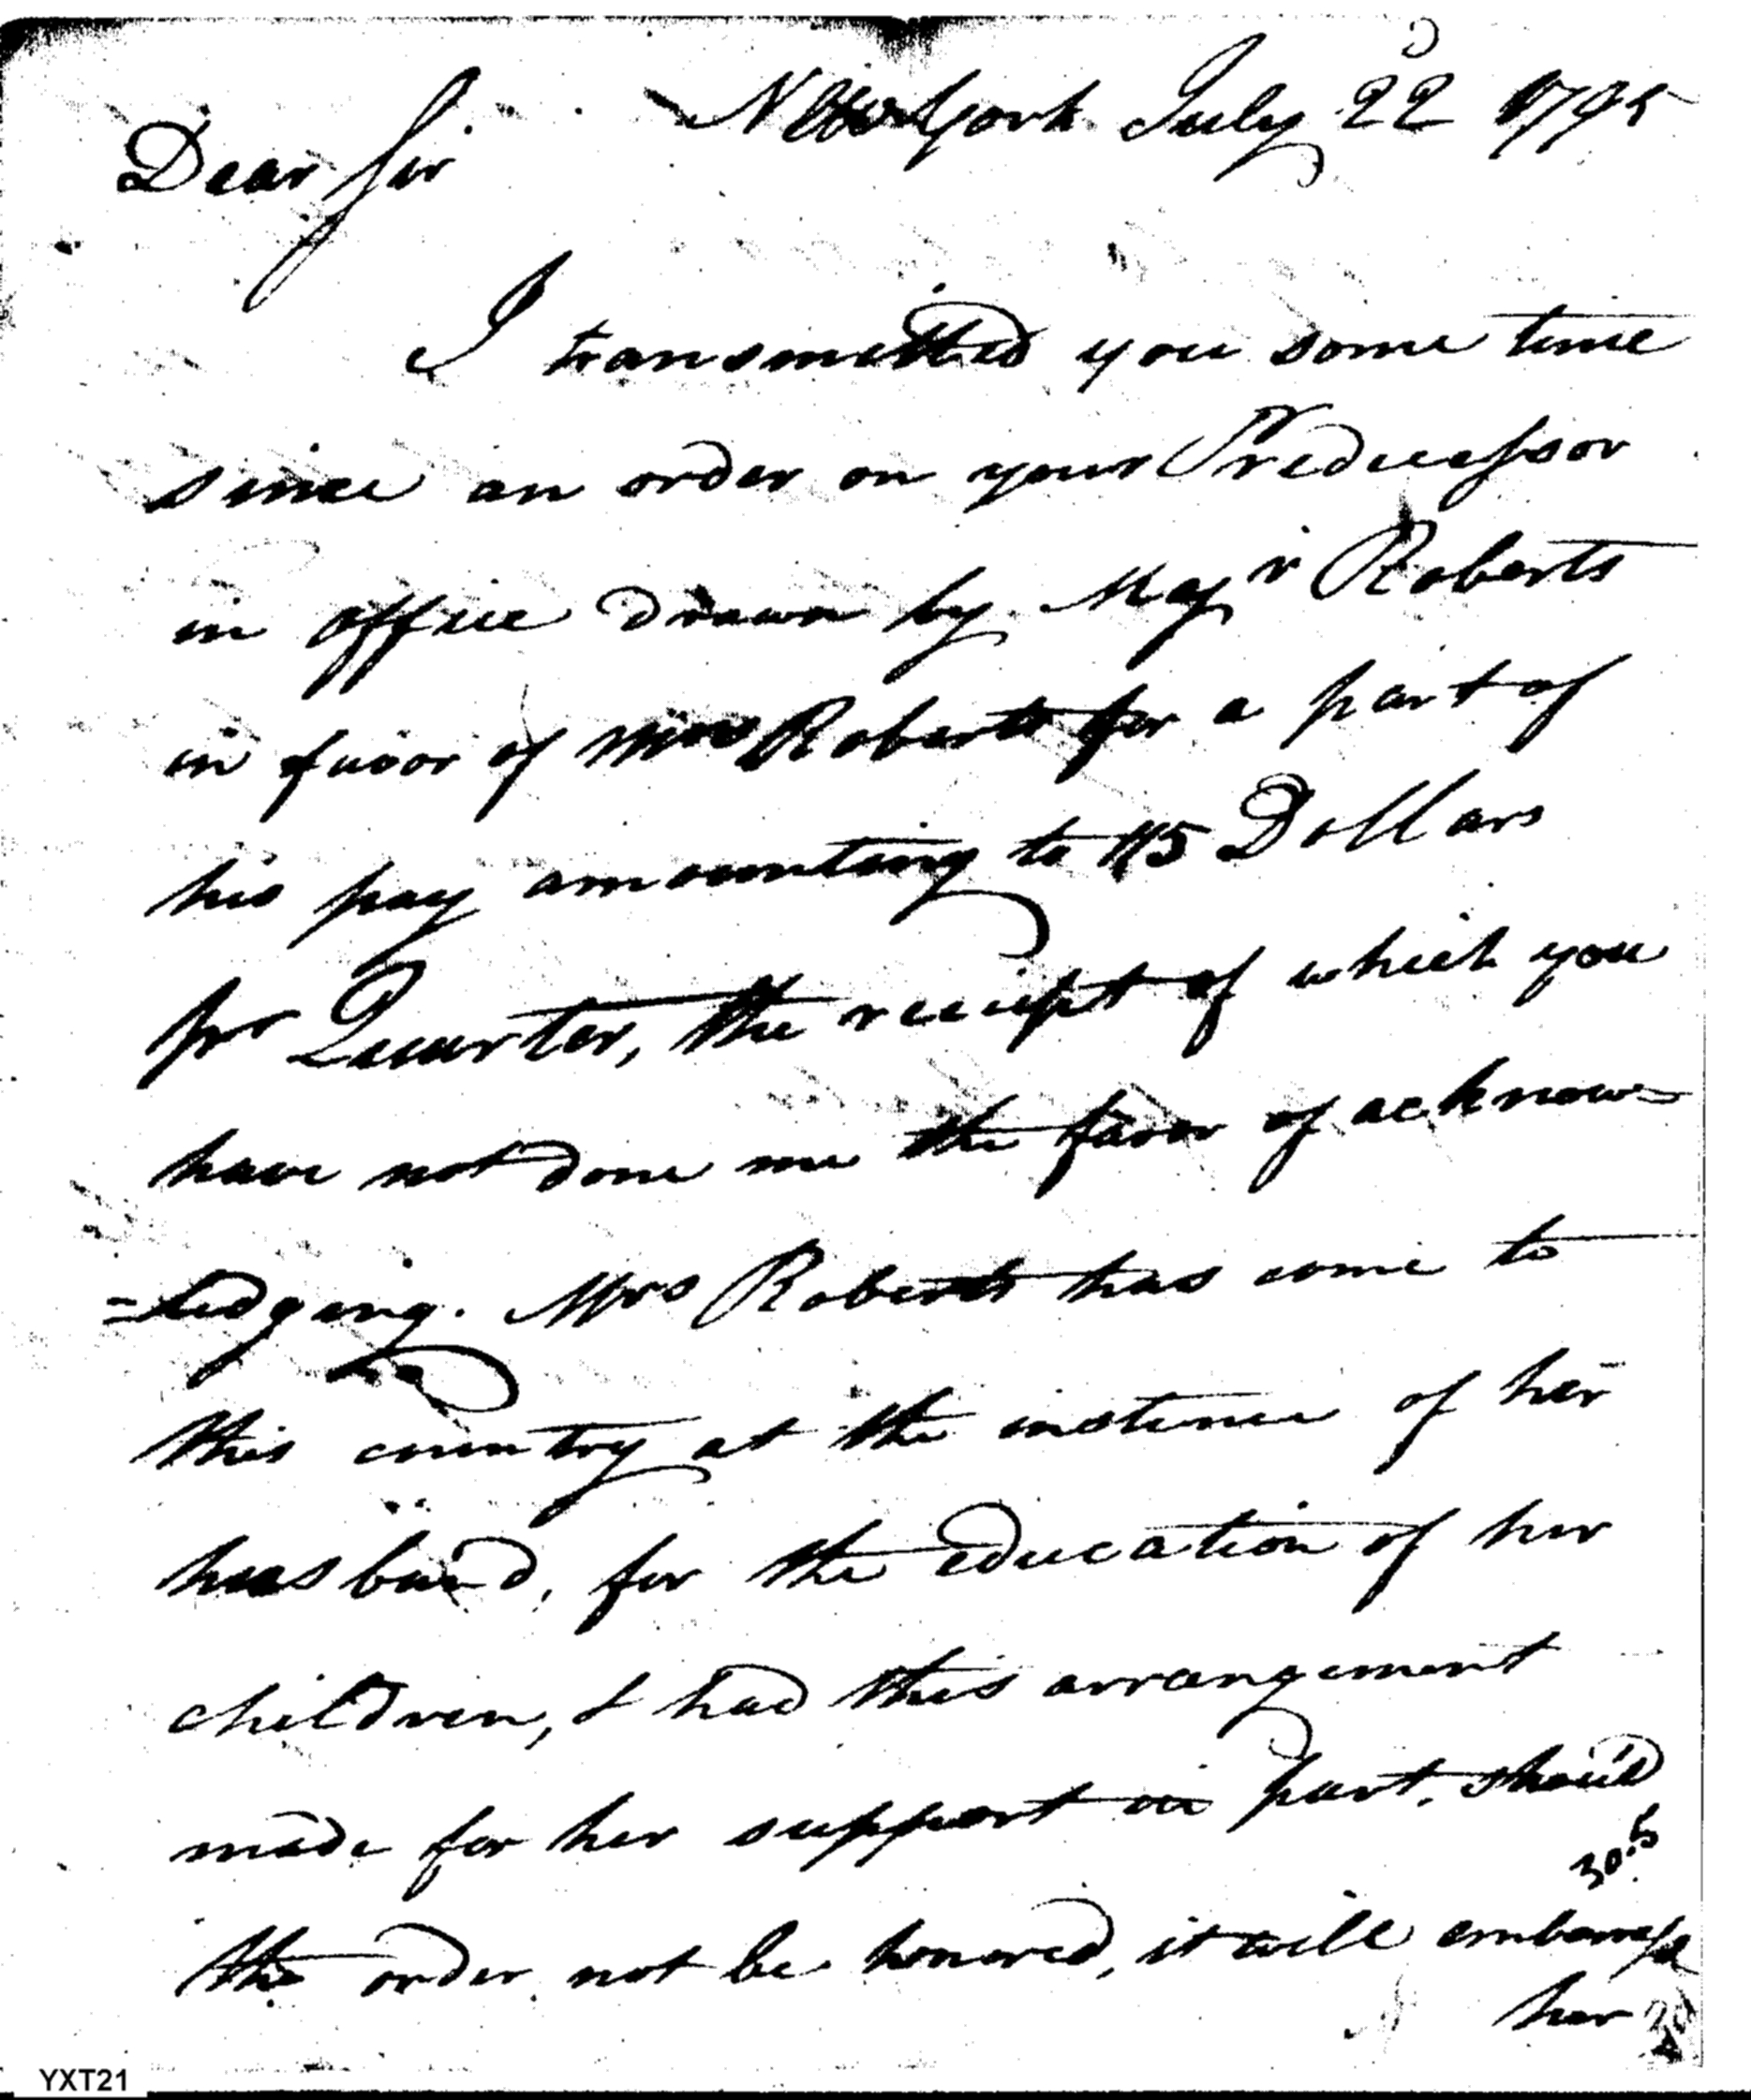 New York July 22 1795
Dear Sir
I transmitted you some time
since an order on your Predecessor
in office drawn by Majr Roberts
in favor of Mrs Roberts for a part of
his pay amounting to 115 Dollars
pr Quarter, the receipt of which you
have not done me the favor of acknow=
=ledging. Mrs Roberts has come to
this country at the instance of her
husband, for the education of her
children, & had this arrangement
made for her support in part. shou'd
the order not be honored, it will embarrass
her
YXT21